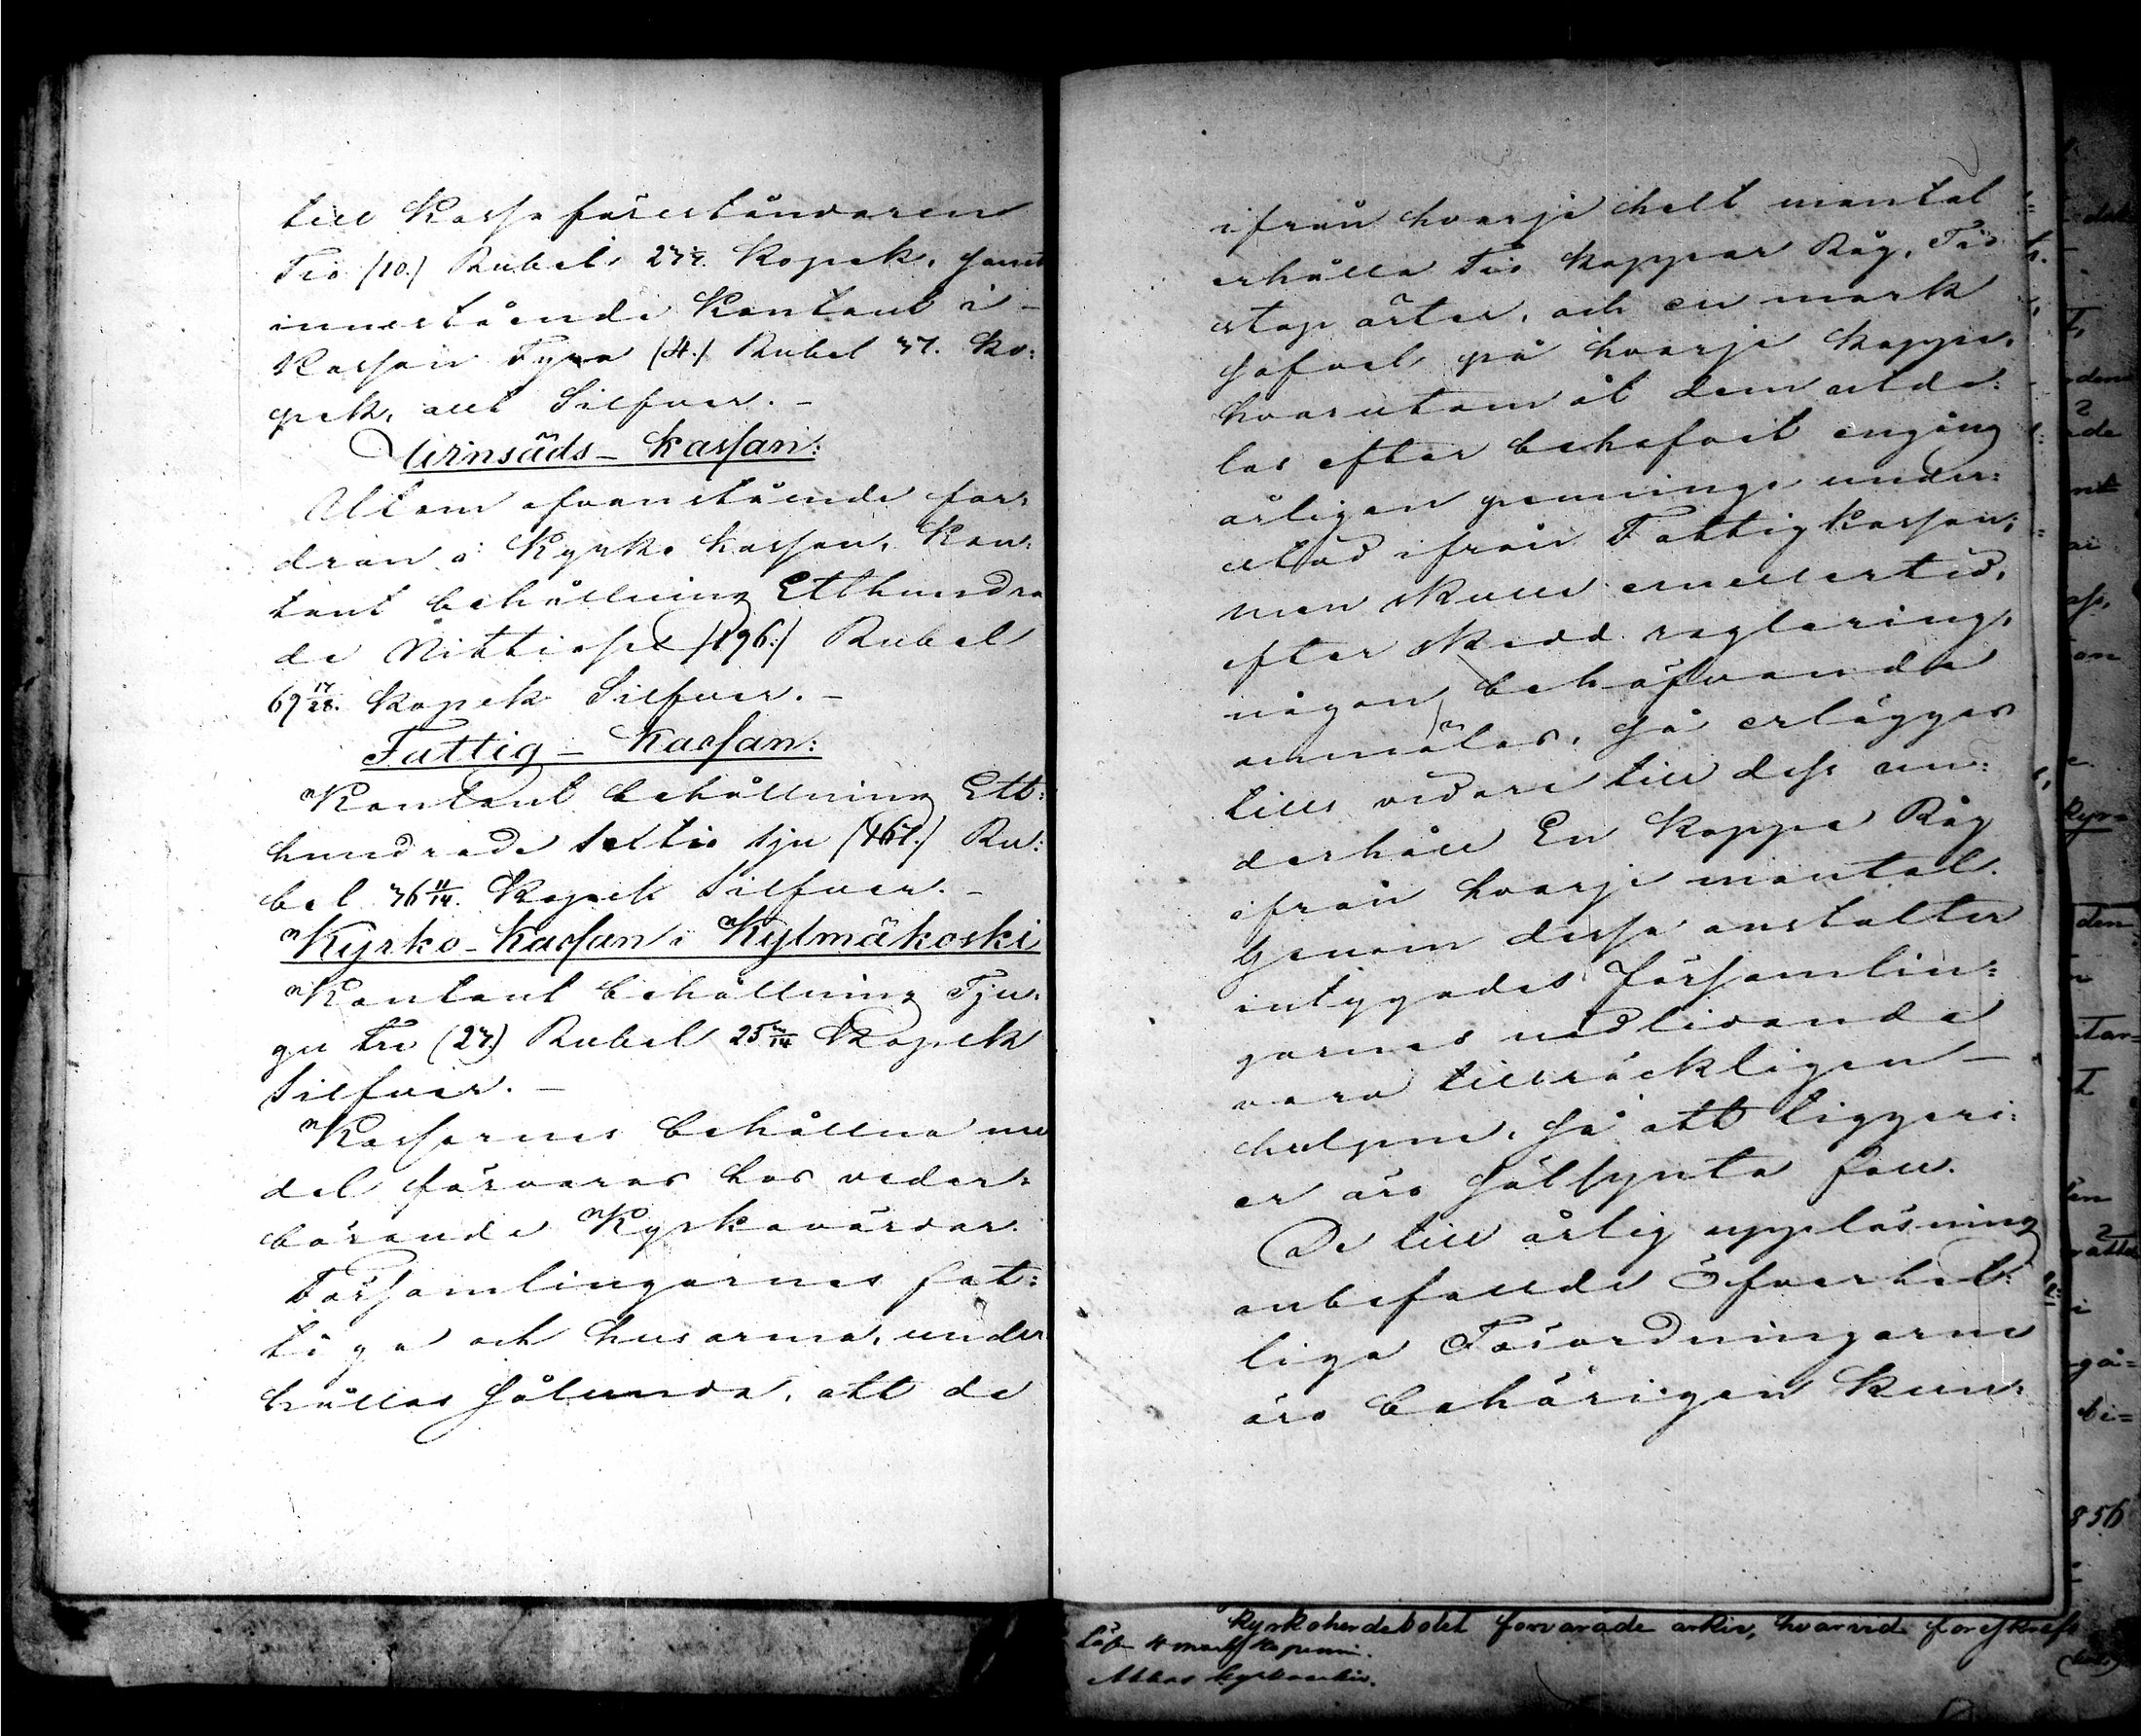 till Kasse föreståndaren
Tio (10.) Rubel 27 1/7. Kopek, samt
innestående Kontant i –
Kassan Fyra (4.) Rubel 37. Ko:
pek, allt Silfver. –
Urinsäds – Kassan:
Utom ofvanstående for:
dran å Kyrko kassan, Kon:
tant behållning Etthundra
de Nittiosex (196.) Rubel
69 17/28. Kopek Silfver. –
Fattig – Kassan:
Kontant behållning Ett:
hundrade sextio sju (167.) Ru:
bel 36 11/14. Kopek Silfver. –
Kyrko – Kassan i Kylmäkoski
Kontant behållning Tju:
gu tre (23.) Rubel 25 3/14 Kopek
Silfver. –
Kassornes behållna me
del förvaras hos veder:
börande Kyrkovärdar.
Församlingarnes fat:
tiga och husarma, under
hållas sålunda, att de
ifrån hvarje helt mantal
erhålla Tio kappar Råg, Tio
stop ärter, och en mark
Sofvel på hvarje kappe,
hvarutom åt dem utde:
las efter behofvet engång
årligen penninge under:
stöd ifrån Fattig kassan;
men skulle emellertid,
efter skedd reglering,
någon behöfvande
anmälas, så erlägges
tills vidare till dess un:
derhåll En kappe Råg
ifrån hvarje mantal.
Genom dessa anstalter
intygades Församlin:
garnes nödlidande
vara tillräckligen –
hulpne, så att tiggeri:
er äro sålsynta fall.
De till årlig uppläsning
anbefallde Öfverhet:
liga Förordningarne
äro behörigen kun:
kyrkoherdebolet forvarade arkiv, hvarvid foreskrefs
Akkas kyrkoarkiv.
856